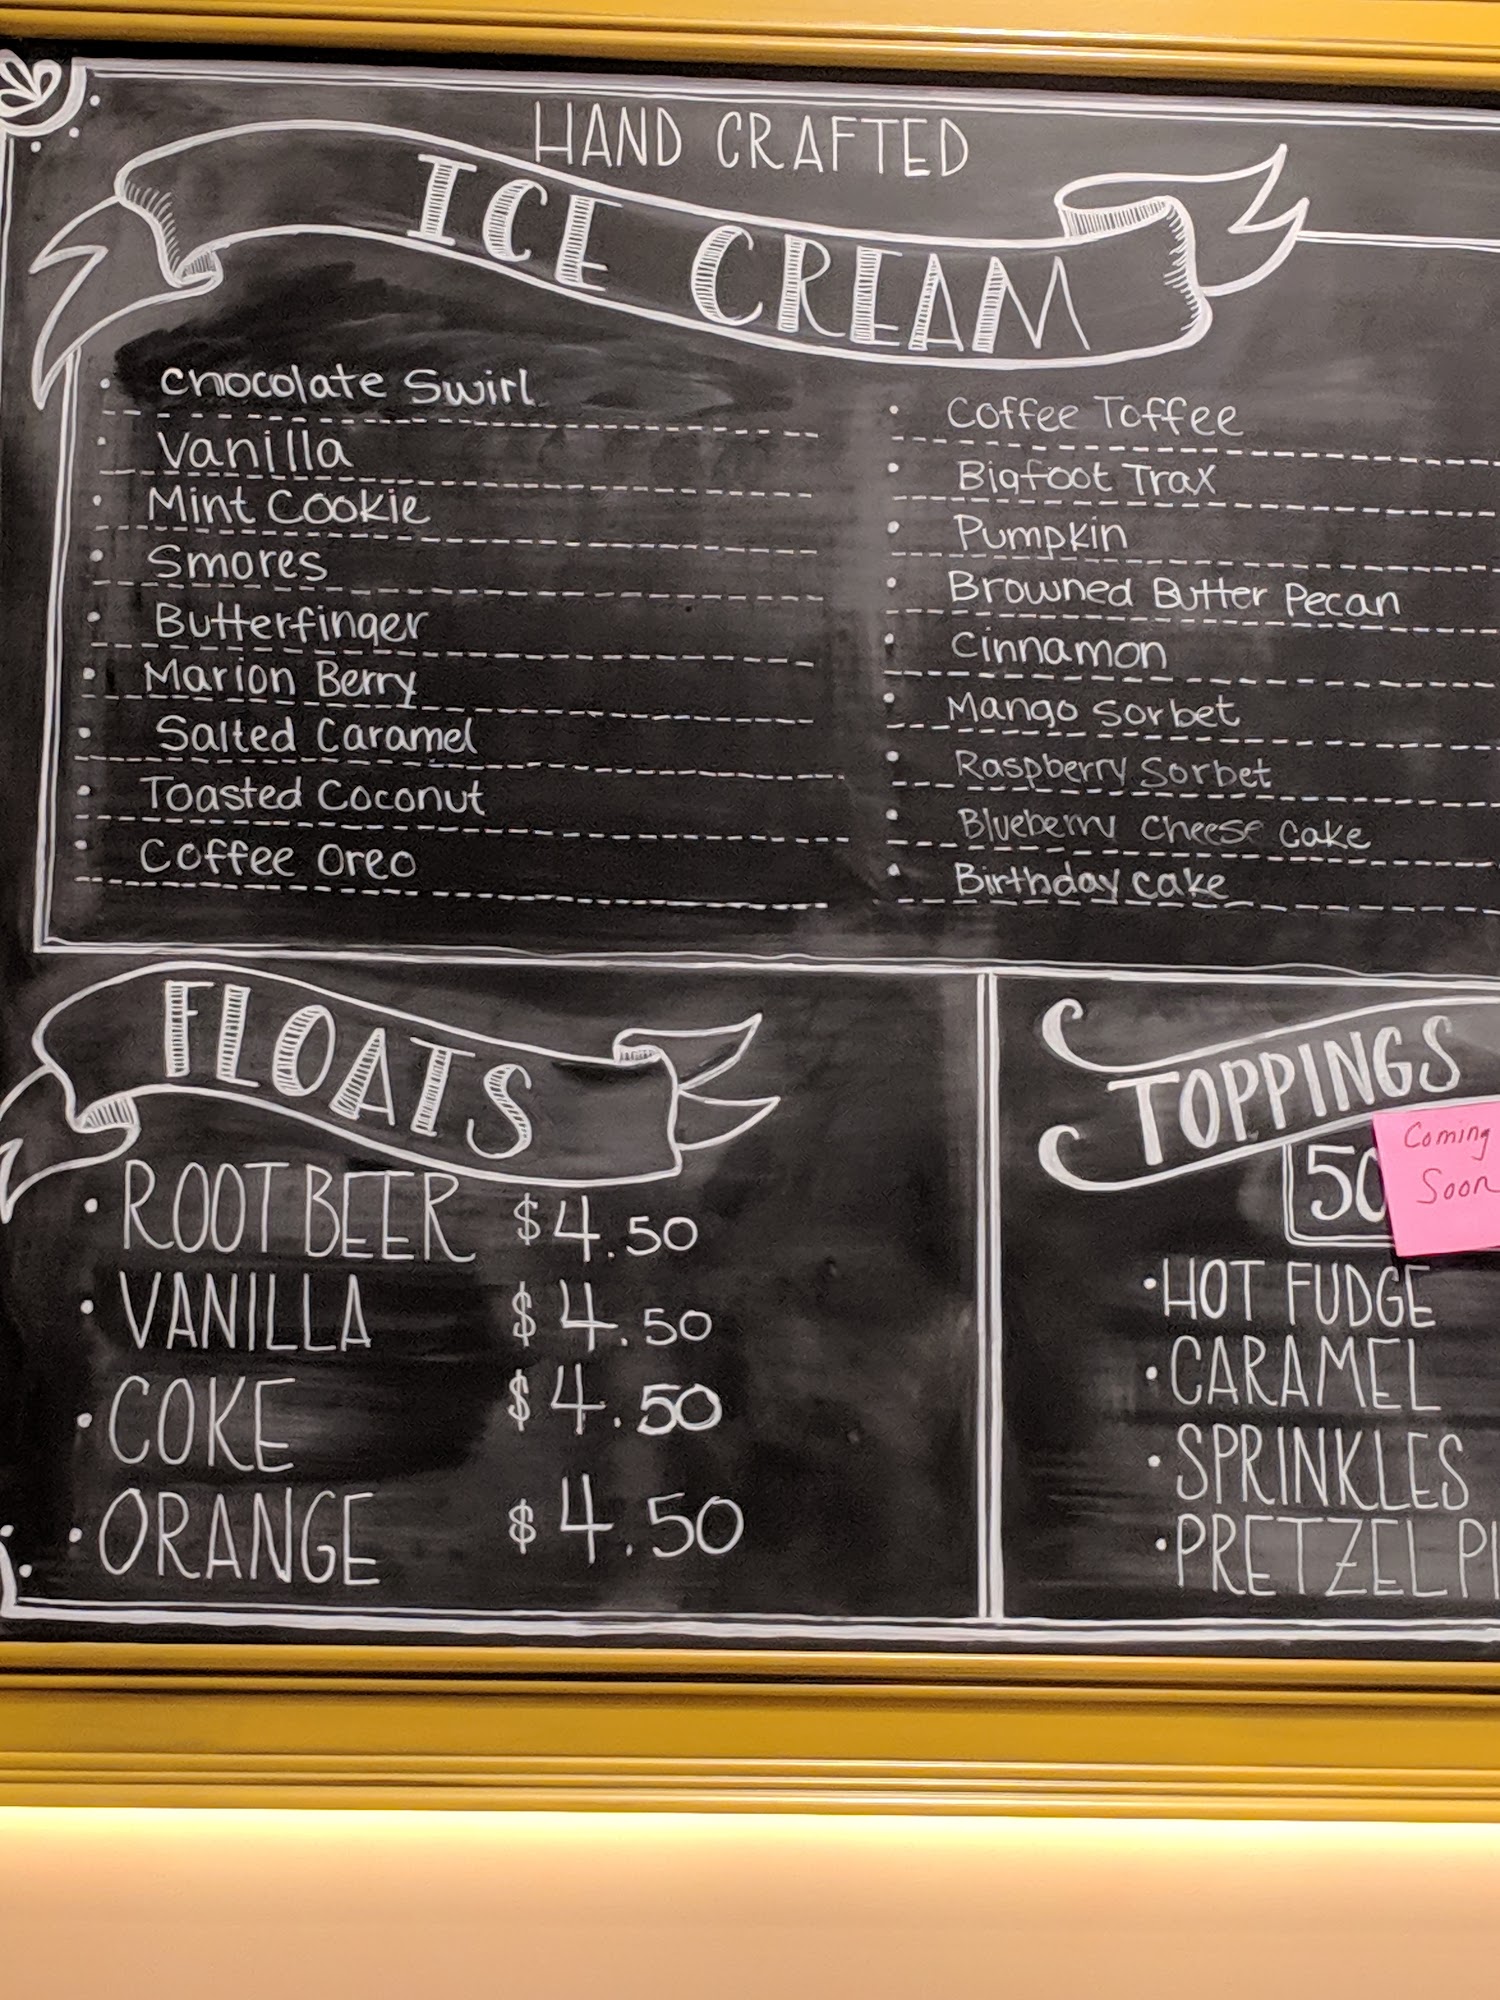 HAND CRAFTED
ICE CREAM
Chocolate Swirl
Vanilla
Mint Cookie
Smores
Butterfinger
Marion Berry
Salted Caramel
Toasted Coconut
Coffee Oreo
Coffee Toffee
Bigfoot Trax
Pumpkin
Browned Butter Pecan
Cinnamon
Mango Sorbet
Raspberry Sorbet
Blueberry Cheese Cake
Birthday Cake
FLOATS
ROOTBEER $4.50
VANILLA $4.50
COKE $4.50
ORANGE $4.50
TOPPINGS
50
Coming
Soon
HOT FUDGE
CARAMEL
SPRINKLES
PRETZEL